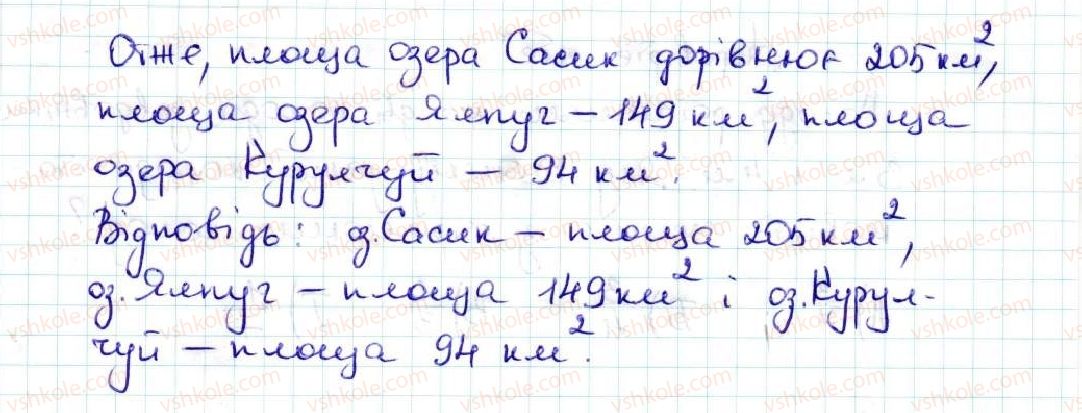 Отже, площа озера Сасик дорівнює 205 км²,
площа озера Ялпуг – 149 км², площа
озера Курулчуй – 94 км².
Відповідь: оз. Сасик – площа 205 км²,
оз. Ялпуг – площа 149 км² і оз. Курул-
чуй – площа 94 км².